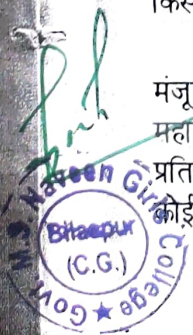 किस
मंजू
महा
प्रति
कोई
Govt. M.S. Naveen Girls College
Bilaspur
(C.G.)